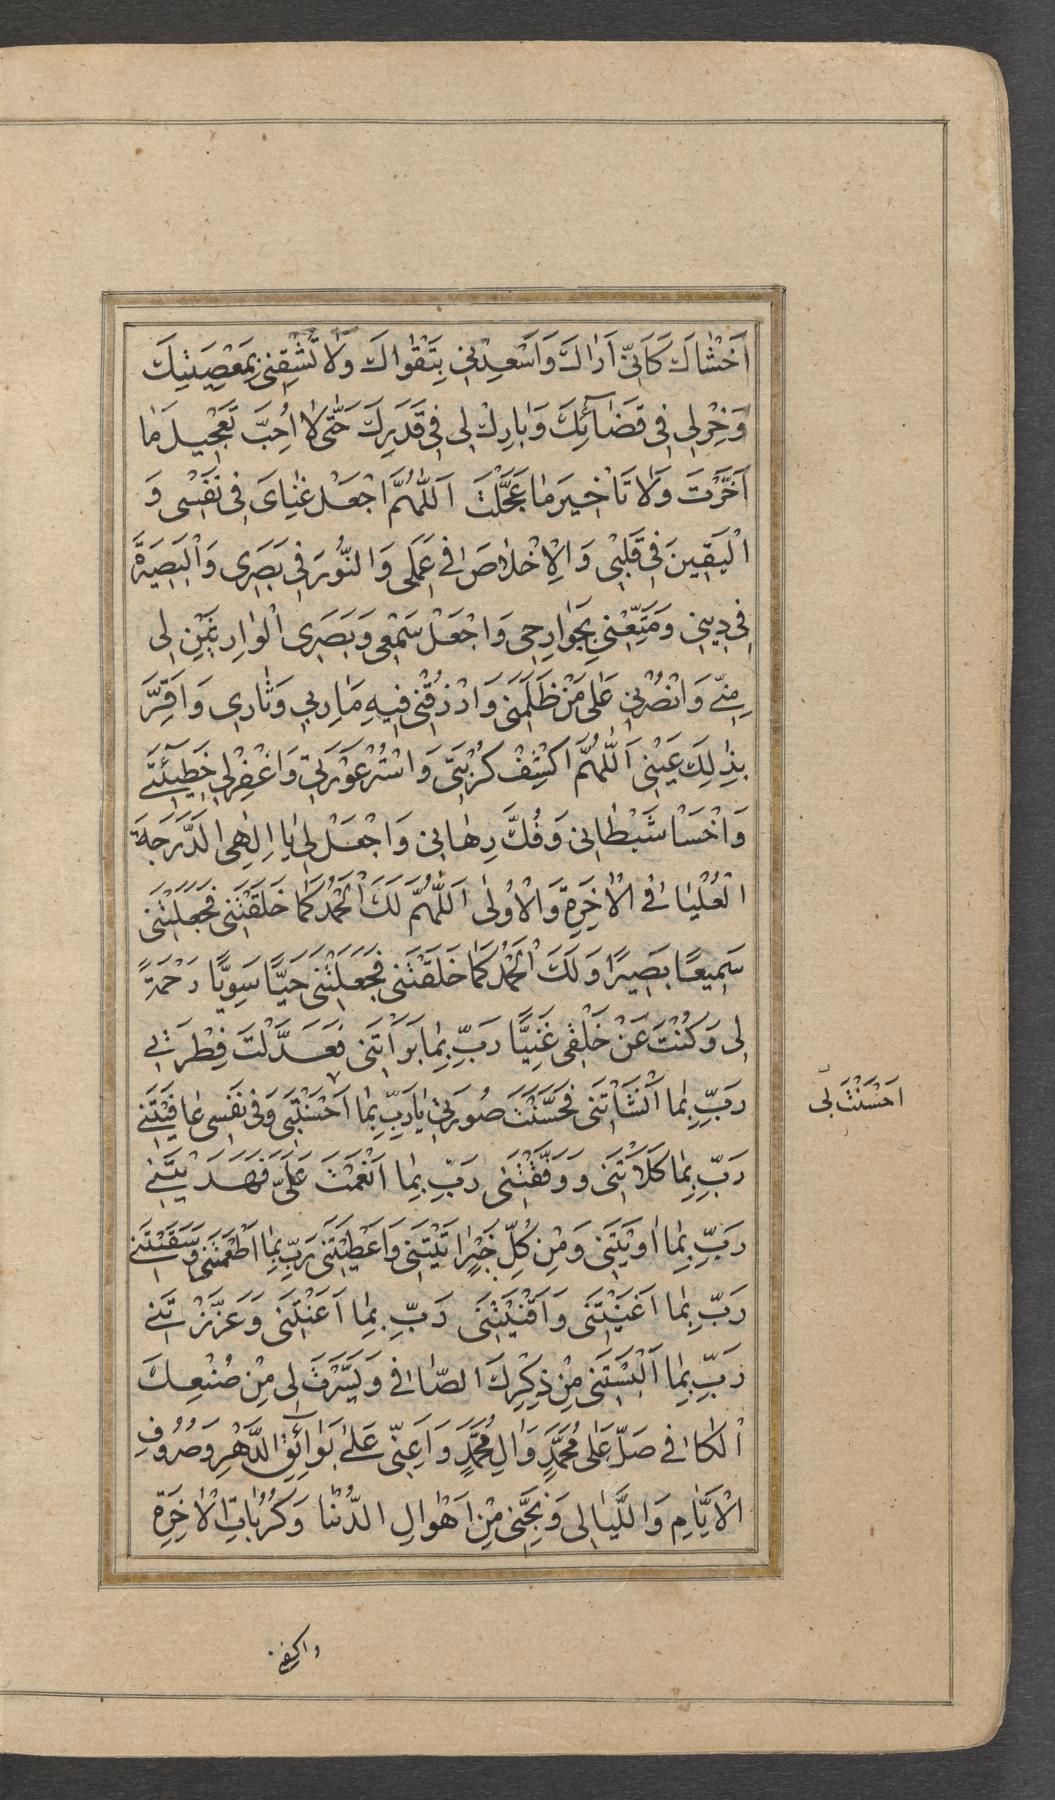 اَخْشَاكَ كَاَنّى اَرَاكَ وَاَسْعِدْنى بِتَقْوٰاكَ وَلٰا تُشْقِنى بِمَعْصِيَتِكَ
وَخِرْلى فى قَضٰآئِكَ وَبٰارِكْ لى فى قَدَرِكَ حَتّٰى لٰا اُحِبَّ تَعْجيلَ مٰا
اَخَّرْتَ وَلٰا تَاْخيرَ مٰا عَجَّلْتَ اَللّٰهُمَّ اجْعَلْ غِنٰاىَ فى نَفْسى وَ
الْيَقينَ فى قَلْبى وَالْاِخْلٰاصَ فى عَمَلى وَالنُّورَ فى بَصَرى وَالْبَصيرَةَ
فى دينى وَمَتِّعْنى بِجَوٰارِحى وَاجْعَلْ سَمْعى وَبَصَرى الْوٰارِثَيْنِ لى
مِنّى وَانْصُرْنى عَلٰى مَنْ ظَلَمَنى وَارْزُقْنى فيهِ مَاٰرِبى وَثٰارى وَاَقِرَّ
بِذٰلِكَ عَيْنى اَللّٰهُمَّ اكْشِفْ كُرْبَتى وَاسْتُرْ عَوْرَتى وَاغْفِرْلى خَطيٓئَتى
وَاخْسَاْ شَيْطٰانى وَفُكَّ رِهٰانى وَاجْعَلْ لى يٰا اِلٰهى الدَّرَجَةَ
الْعُلْيٰا فى الْاٰخِرَةِ وَالْاُولٰى اَللّٰهُمَّ لَكَ الْحَمْدُ كَمٰا خَلَقْتَنى فَجَعَلْتَنى
سَميعًا بَصيرًا وَلَكَ الْحَمْدُ كَمٰا خَلَقْتَنى فَجَعَلْتَنى حَيًّا سَوِيًّا رَحْمَةً
لى وَكُنْتَ عَنْ خَلْقى غَنِيًّا رَبِّ بِمٰا بَرَاْتَنى فَعَدَّلْتَ فِطْرَتى
رَبِّ بِمٰا اَنْشَاْتَنى فَحَسَّنْتَ صُورَتى يٰا رَبِّ بِمٰا اَحْسَنْتَ بى وَفى نَفْسى عٰافَيْتَنى
اَحْسَنْتَ بى
رَبِّ بِمٰا كَلَاْتَنى وَوَفَّقْتَنى رَبِّ بِمٰا اَنْعَمْتَ عَلَىَّ فَهَدَيْتَنى
رَبِّ بِمٰا اٰوَيْتَنى وَمِنْ كُلِّ خَيْرٍ اٰتَيْتَنى وَاَعْطَيْتَنى رَبِّ بِمٰا اَطْعَمْتَنى وَسَقَيْتَنى
رَبِّ بِمٰا اَغْنَيْتَنى وَاَقْنَيْتَنى رَبِّ بِمٰا اَعَنْتَنى وَعَزَّزْتَنى
رَبِّ بِمٰا اَلْبَسْتَنى مِنْ ذِكْرِكَ الصّٰافى وَيَسَّرْتَ لى مِنْ صُنْعِكَ
الْكٰافى صَلِّ عَلٰى مُحَمَّدٍ وَاٰلِ مُحَمَّدٍ وَاَعِنّى عَلٰى بَوٰآئِقِ الدَّهْرِ وَصُرُوفِ
الْاَيّٰامِ وَاللَّيٰالى وَنَجِّنى مِنْ اَهْوٰالِ الدُّنْيٰا وَكُرُبٰاتِ الْاٰخِرَةِ
واكفنى